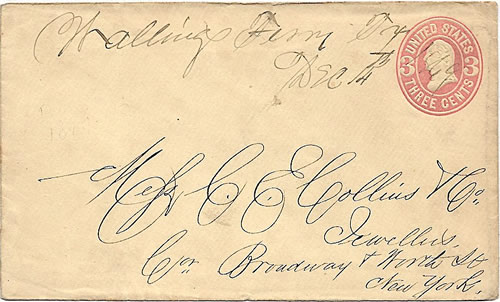 Wallings Ferry Tx
Dec 14
UNITED STATES
3 3
THREE CENTS
Mess C. E. Collins & Co
Jewellers.
Cor Broadway & Worth St
New York.